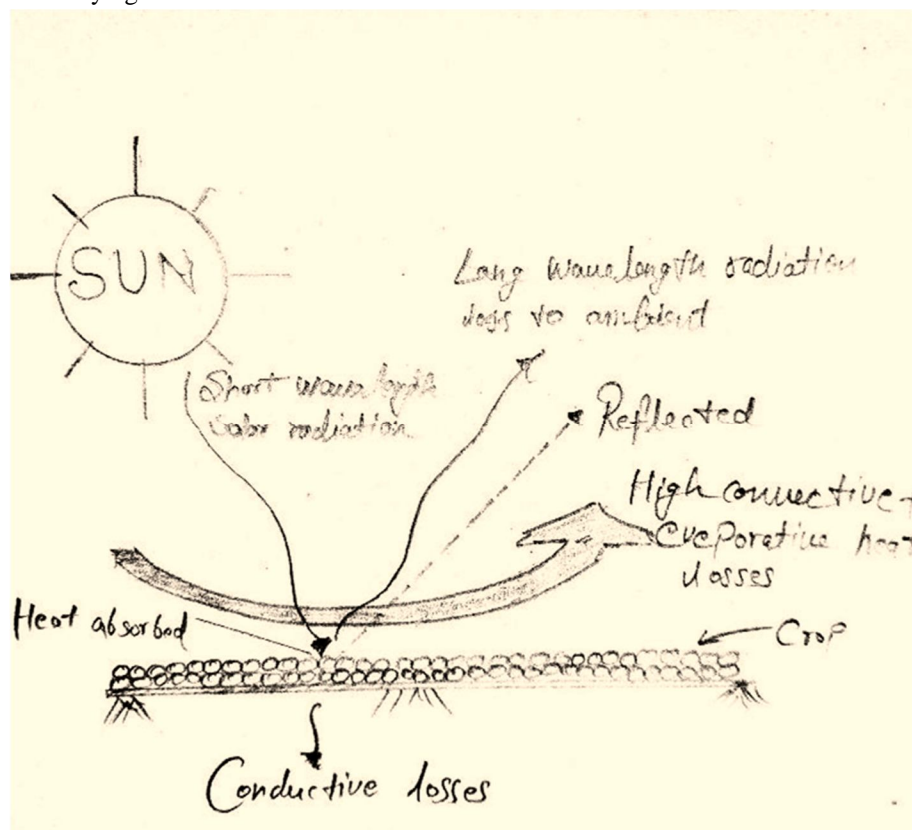 SUN
Long wavelength radiation
loss to ambient
Short wavelength
solar radiation
Reflected
High convective +
evaporative heat
losses
Heat absorbed
Crop
Conductive losses